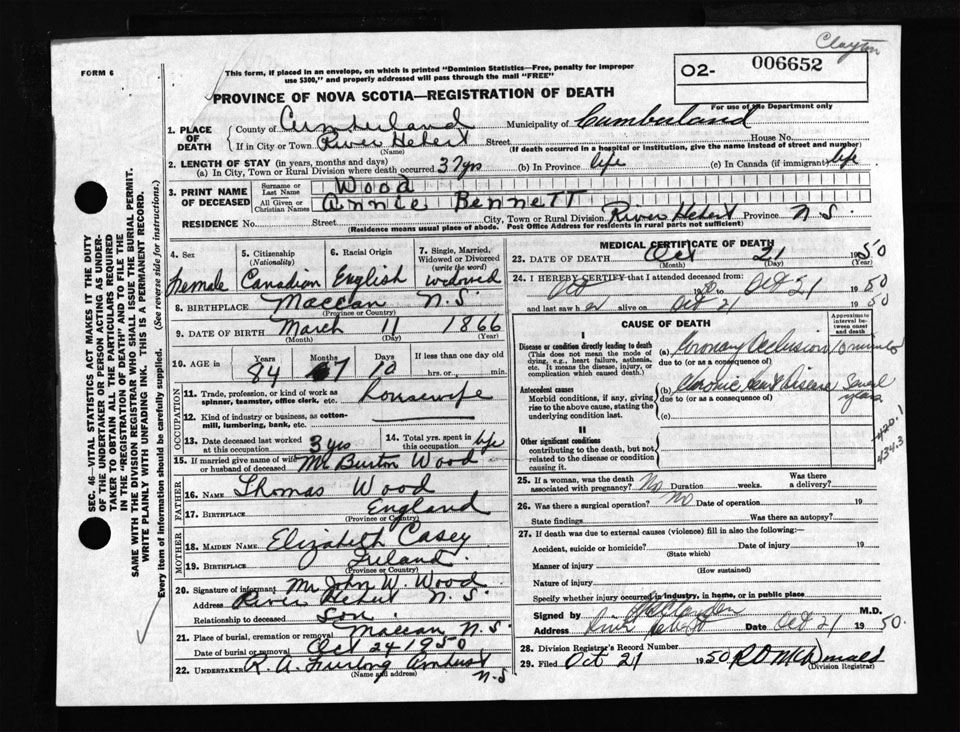 Clayton
FORM 6
This form, if placed in an envelope, on which is printed "Dominion Statistics—Free, penalty for improper
use $300," and properly addressed will pass through the mail "FREE"
O2- 006652
For use of the Department only
PROVINCE OF NOVA SCOTIA—REGISTRATION OF DEATH
1. PLACE OF DEATH
County of Cumberland Municipality of Cumberland
If in City or Town River Hebert Street House No.
(Name) (If death occurred in a hospital or institution, give the name instead of street and number)
2. LENGTH OF STAY (in years, months and days)
(a) In City, Town or Rural Division where death occurred 37 yrs (b) In Province life (c) In Canada (if immigrant) life
3. PRINT NAME OF DECEASED
Surname or Last Name Wood
All Given or Christian Names Annie Bennett
RESIDENCE No. Street City, Town or Rural Division River Hebert Province N.S.
(Residence means usual place of abode. Post Office Address for residents in rural parts not sufficient)
4. Sex Female
5. Citizenship (Nationality) Canadian
6. Racial Origin English
7. Single, Married, Widowed or Divorced (write the word) widowed
8. BIRTHPLACE Maccan N.S.
(Province or Country)
9. DATE OF BIRTH March 11 1866
(Month) (Day) (Year)
10. AGE in Years 84 Months 7 Days 10 If less than one day old hrs. or min.
OCCUPATION
11. Trade, profession, or kind of work as spinner, teamster, office clerk, etc. housewife
12. Kind of industry or business, as cotton-mill, lumbering, bank, etc.
13. Date deceased last worked at this occupation 3 yrs
14. Total yrs. spent in this occupation life
15. If married give name of wife or husband of deceased Mr Burton Wood
FATHER
16. NAME Thomas Wood
17. BIRTHPLACE England
(Province or Country)
MOTHER
18. MAIDEN NAME Elizabeth Casey
19. BIRTHPLACE Ireland
(Province or Country)
20. Signature of informant Mr John W. Wood
Address River Hebert N.S.
Relationship to deceased Son
21. Place of burial, cremation or removal Maccan N.S.
Date of burial or removal Oct 24 1950
22. UNDERTAKER R. A. Furlong Amherst N.S
(Name and address)
MEDICAL CERTIFICATE OF DEATH
23. DATE OF DEATH Oct 21 1950
(Month) (Day) (Year)
24. I HEREBY CERTIFY that I attended deceased from:
Oct 1950 to Oct 21 1950
and last saw h er alive on Oct 21 1950
CAUSE OF DEATH
Approximate interval between onset and death
I
Disease or condition directly leading to death
(This does not mean the mode of dying, e.g., heart failure, asthenia, etc. It means the disease, injury, or complication which caused death.)
(a) Coronary Occlusion 10 minutes
due to (or as a consequence of)
Antecedent causes
Morbid conditions, if any, giving rise to the above cause, stating the underlying condition last.
(b) Chronic Heart Disease Several years
due to (or as a consequence of)
(c)
II
Other significant conditions
contributing to the death, but not related to the disease or condition causing it.
420.1
434.3
25. If a woman, was the death associated with pregnancy? No Duration weeks. Was there a delivery?
26. Was there a surgical operation? No Date of operation 19
State findings Was there an autopsy?
27. If death was due to external causes (violence) fill in also the following:
Accident, suicide or homicide? Date of injury 19
(State which)
Manner of injury
(How sustained)
Nature of injury
Specify whether injury occurred in industry, in home, or in public place
Signed by M.D.
Address River Hebert Date Oct 21 1950.
28. Division Registrar's Record Number
29. Filed Oct 21 1950 R D McDonald
(Division Registrar)
SEC. 46—VITAL STATISTICS ACT MAKES IT THE DUTY
OF THE UNDERTAKER OR PERSON ACTING AS UNDER-
TAKER TO OBTAIN ALL THE PARTICULARS REQUIRED
IN THE "REGISTRATION OF DEATH" AND TO FILE THE
SAME WITH THE DIVISION REGISTRAR WHO SHALL ISSUE THE BURIAL PERMIT.
WRITE PLAINLY WITH UNFADING INK. THIS IS A PERMANENT RECORD.
Every item of information should be carefully supplied. (See reverse side for instructions.)